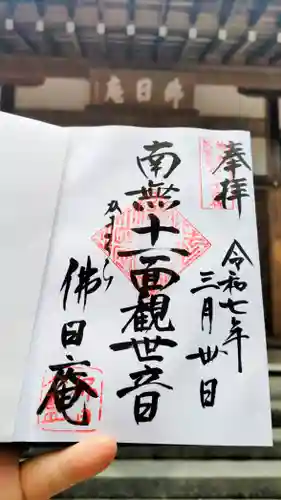 庵日佛
奉拝
令和七年
三月卅日
南無十一面観世音
かまくら
佛日庵